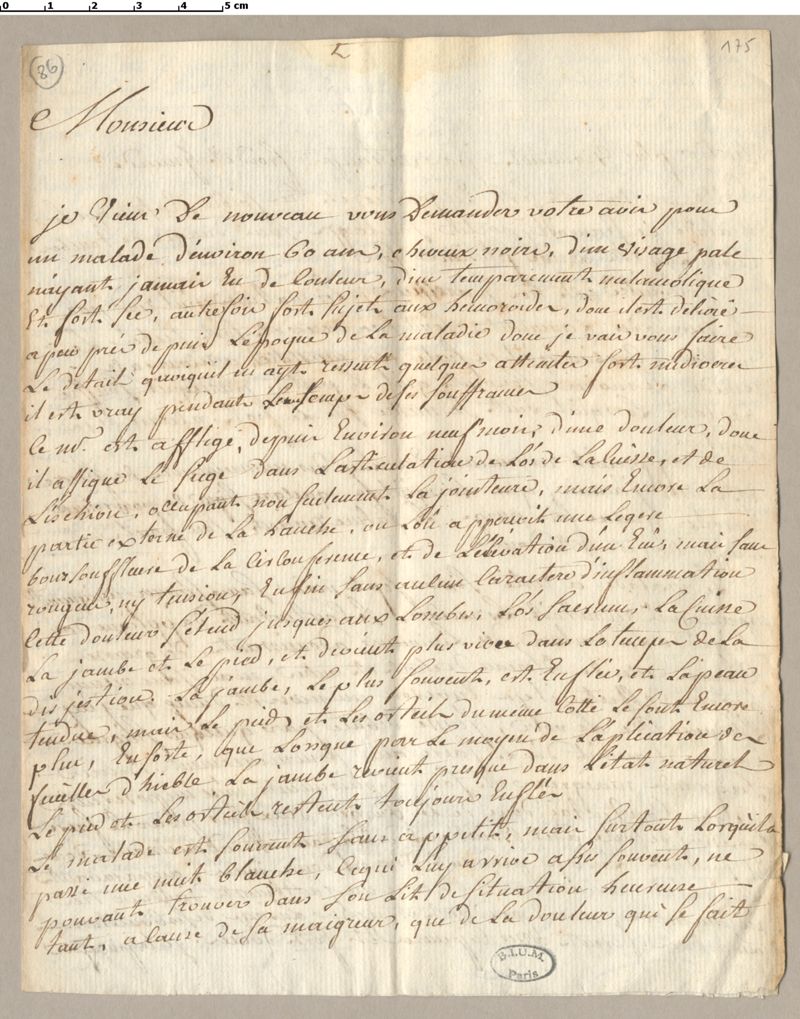 0 1 2 3 4 5 cm
86
175
Monsieur
je viens De nouveau vous Demander votre avis pour
un malade d'environ 60 ans, cheveux noirs, d'un visage pale
n'ayant jamais Eu de Couleur, d'un temperament melancolique
Et fort sec, autrefois fort sujet aux hemoroïdes, dont il est delivré
a peu près depuis L'epoque de La maladie dont je vais vous faire
Le detail quoiquil en ayt ressenti quelques atteintes fort mediocres
il est vray pendant Le temps de ses souffrances
Ce mr. est affligé, depuis Environ neuf mois, d'une douleur, dont
il assigne Le siege dans L'articulation de L'os de La Cuisse, et de
L'ischion, occupant non seulement La jointure, mais Encore La
partie externe de La hanche, ou L'on apperçoit une Legere
boursoufflure de La Circonference, et de L'élévation d'un Ecu, mais sans
rougeur, ny tension, Enfin sans aucun Caractere d'inflammation
Cette douleur s'étend jusques aux Lombes, L'os Sacrum, La Cuisse
La jambe et Le pied, et devient plus vive dans Le temps de La
disjestion. La jambe, Le plus souvent, est Enflée, et La peau
tendue, mais Le pied et Les orteils du meme Cotté Le sont Encore
plus, Ensorte, que Lorsque par Le moyen de L'aplication des
feuilles d'hieble La jambe revient presque dans L'état naturel
Le pied et Les orteils restent toujours Enflés
Le malade est souvent sans appetit, mais surtout Lorsquil a
passé une nuit blanche, Ce qui Luy arrive assés souvent, ne
pouvant trouver dans son Lit de situation heureuse
tant, a Cause de sa maigreur, que de La douleur qui se fait
B.I.U.M.
Paris